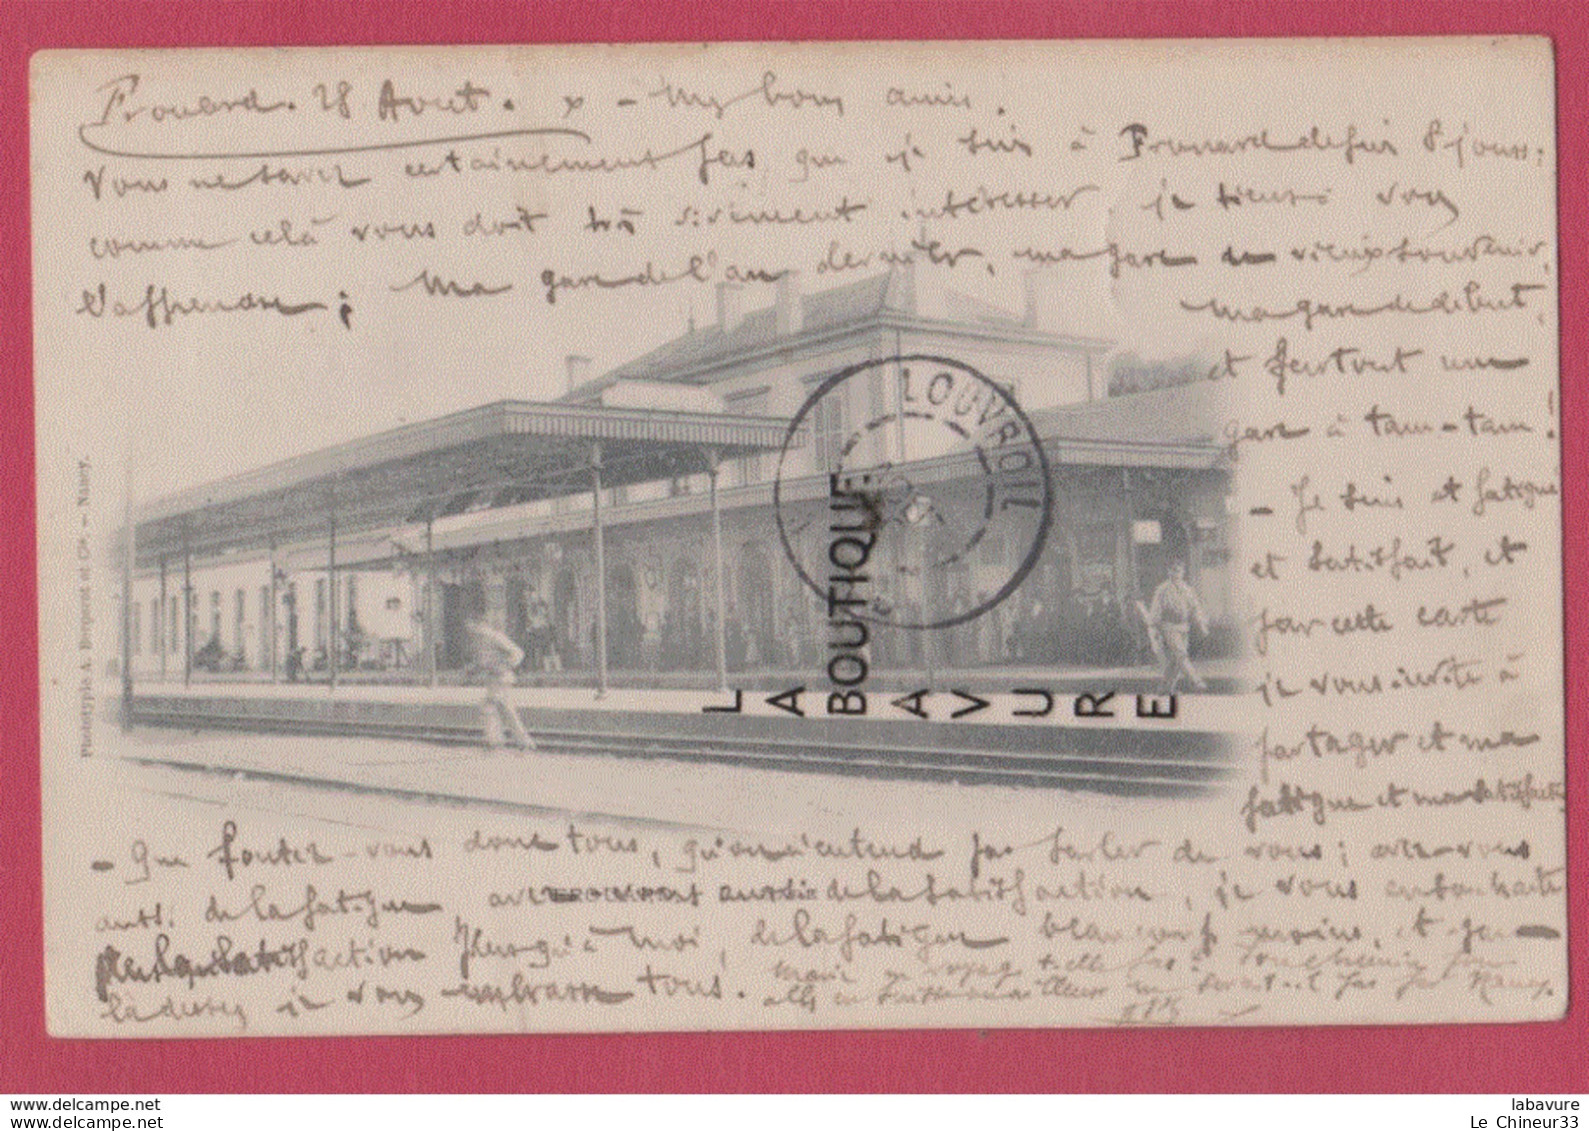 Frouard. 28 Aout. x - Mes bons amis.
Vous ne savez certainement pas que je suis à Frouard depuis 8 jours;
comme celà vous doit très vivement intéresser, je tiens à vous
l'apprendre; Ma gare de l'an dernier, ma gare
vieux souvenir,
ma gare de début,
et partout une
gare à tam-tam!
- Je suis et fatigué
et satisfait, et
par cette carte
je vous invite à
partager et ma
fatigue et ma satisfaction
- Que foutez-vous donc tous, qu'on n'entend pas parler de vous; avez-vous
de la fatigue de la satisfaction, je vous en souhaite
satisfaction qu'à moi, de la fatigue beaucoup moins, et
là dessus je vous embrasse tous.
Nancy.
Phototypie A. Bergeret et Cie. — Nancy.
LOUVROIL
LA BOUTIQUE
LAVURE
labavure
Le Chineur33
www.delcampe.net
www.delcampe.net